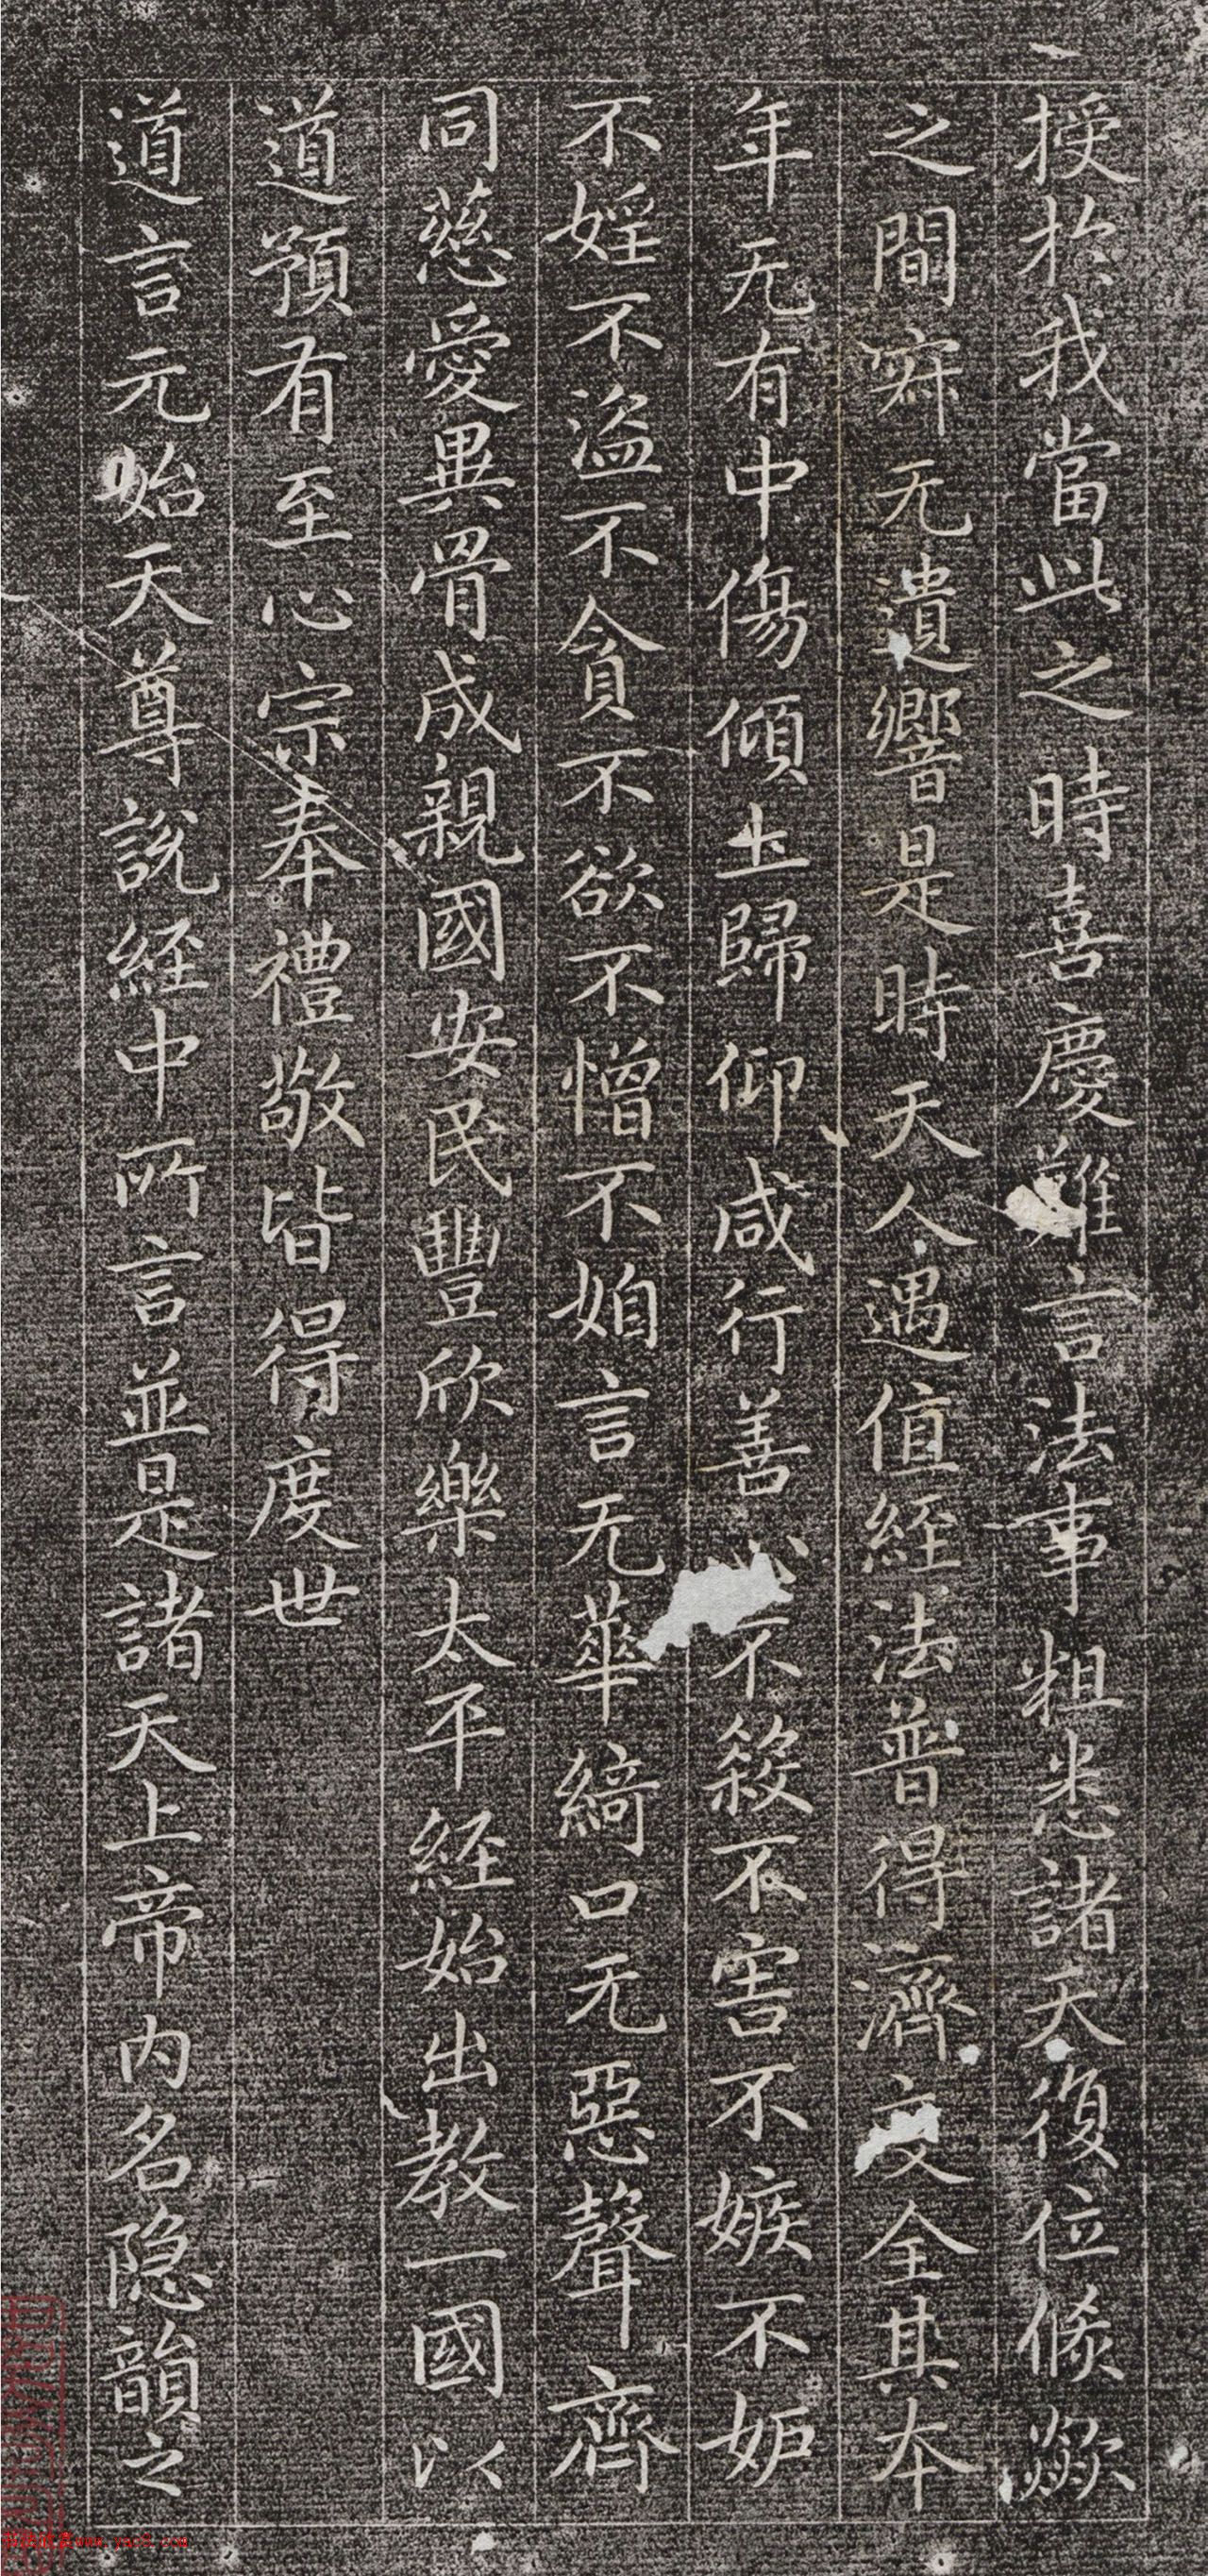 授於我當此之時喜慶難言法事粗悉諸天復位倐歘
之間寂无遺響是時天人遇值経法普得濟度全其本
年无有中傷傾土歸仰咸行善心不煞不害不嫉不妒
不婬不盜不貪不欲不憎不妲言无華綺口无惡聲齊
同慈愛異骨成親國安民豐欣樂太平経始出教一國以
道預有至心宗奉禮敬皆得度世
道言元始天尊說経中所言並是諸天上帝内名隐韻之